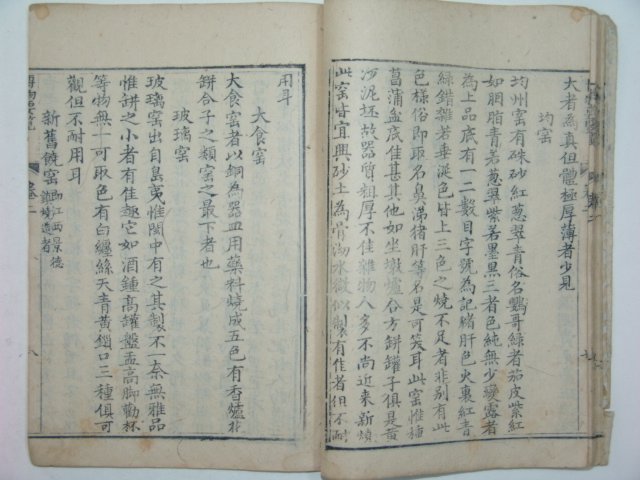 大者為真但體極厚薄者少見
均窑
均州窑有硃砂紅葱翠青俗名鸚哥綠者茄皮紫紅
如胭脂青若葱翠紫若墨黑三者色純無少變露者
為上品底有一二數目字號為記猪肝色火裏紅青
綠錯雜若垂涎色皆上三色之燒不足者非别有此
色様俱即取名鼻涕猪肝等名是可笑耳此窑惟種
菖蒲盆底佳甚其他如坐墩爐合方缾罐子俱是黄
沙泥坯故器質粗厚不佳雜物人多不尚近來新燒
此窑皆宜興砂土為骨泑水微似製有佳者但不耐
用耳
大食窑
大食窑者以銅為器皿用藥料燒成五色有香爐花
缾合子之類窑之最下者也
玻璃窑
玻璃窑出自島夷惟閩中有之其製不一奈無雅品
惟缾之小者有佳趣它如酒鍾高罐盤盂高脚勸杯
等物無一可取色有白纏絲天青黄鎖口三種俱可
觀但不耐用耳
新舊饒窑
卷二